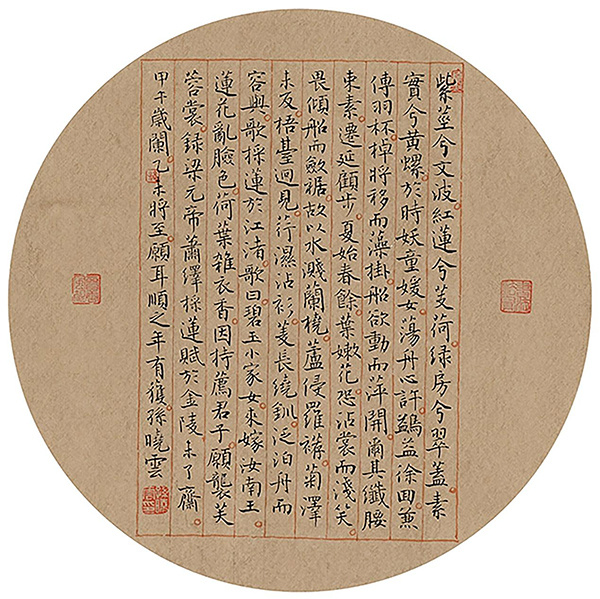 紫莖兮文波紅蓮兮芰荷綠房兮翠蓋素
實兮黃螺於時妖童媛女蕩舟心許鷁徐回兼
傳羽杯棹將移而藻掛船欲動而萍開爾其纖腰
束素遷延顧步夏始春餘葉嫩花恐沾裳而淺笑
畏傾船而斂裾故以水濺蘭橈蘆侵羅襪菊澤
未反梧臺迥見荇濕沾衫菱長繞釧泛泊舟而
容與歌採蓮於江渚歌曰碧玉小家女來嫁汝南王
蓮花亂臉色荷葉雜衣香因持薦君子願襲芙
蓉裳錄梁元帝蕭繹採蓮賦於金陵未了齋
甲午歲闌乙未將至願耳順之年有獲孫曉雲